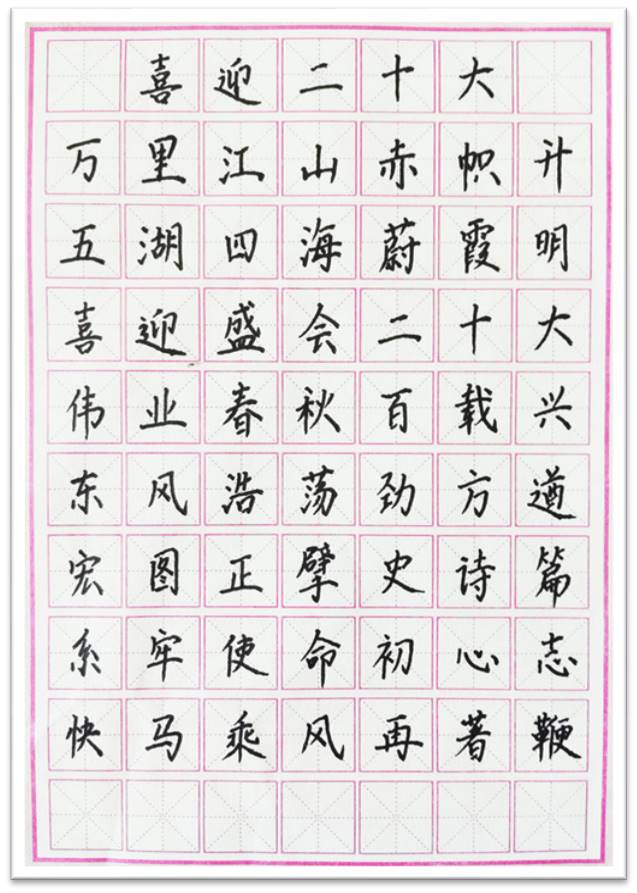 喜迎二十大
万里江山赤帜升
五湖四海蔚霞明
喜迎盛会二十大
伟业春秋百载兴
东风浩荡劲方遒
宏图正擘史诗篇
系牢使命初心志
快马乘风再著鞭